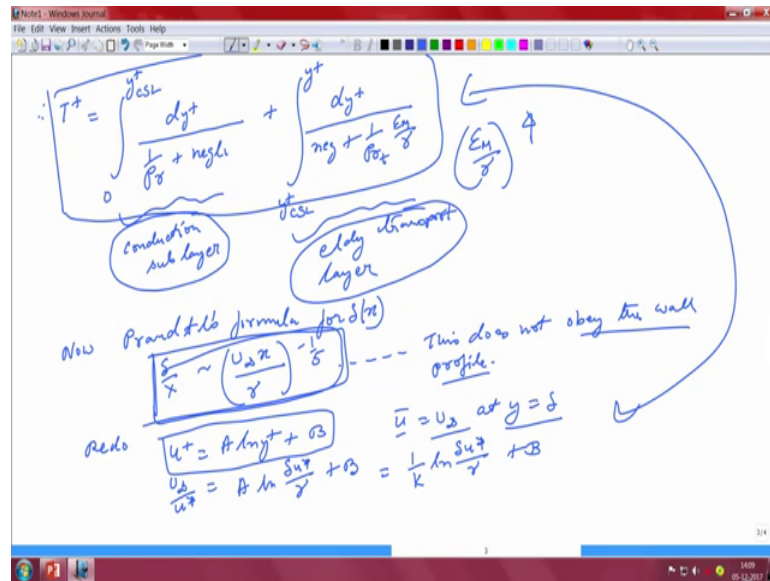 Note1 - Windows Journal
File Edit View Insert Actions Tools Help
Page Width
∴ T⁺ = ∫₀^{y⁺CSL} dy⁺ / (1/Pr + negl.) + ∫_{y⁺CSL}^{y⁺} dy⁺ / (neg + 1/Pr_t ε_M/γ)
(ε_M/γ) ↑
conduction sub layer
eddy transport layer
Now Prandtl's formula for δ(x)
δ/x ~ (U∞x/γ)^{-1/5} ---- This does not obey the wall profile.
Redo u⁺ = A ln y⁺ + B ū = U∞ at y = δ
U∞/u* = A ln δu*/γ + B = 1/K ln δu*/γ + B
3
3/4
14:09
05-12-2017